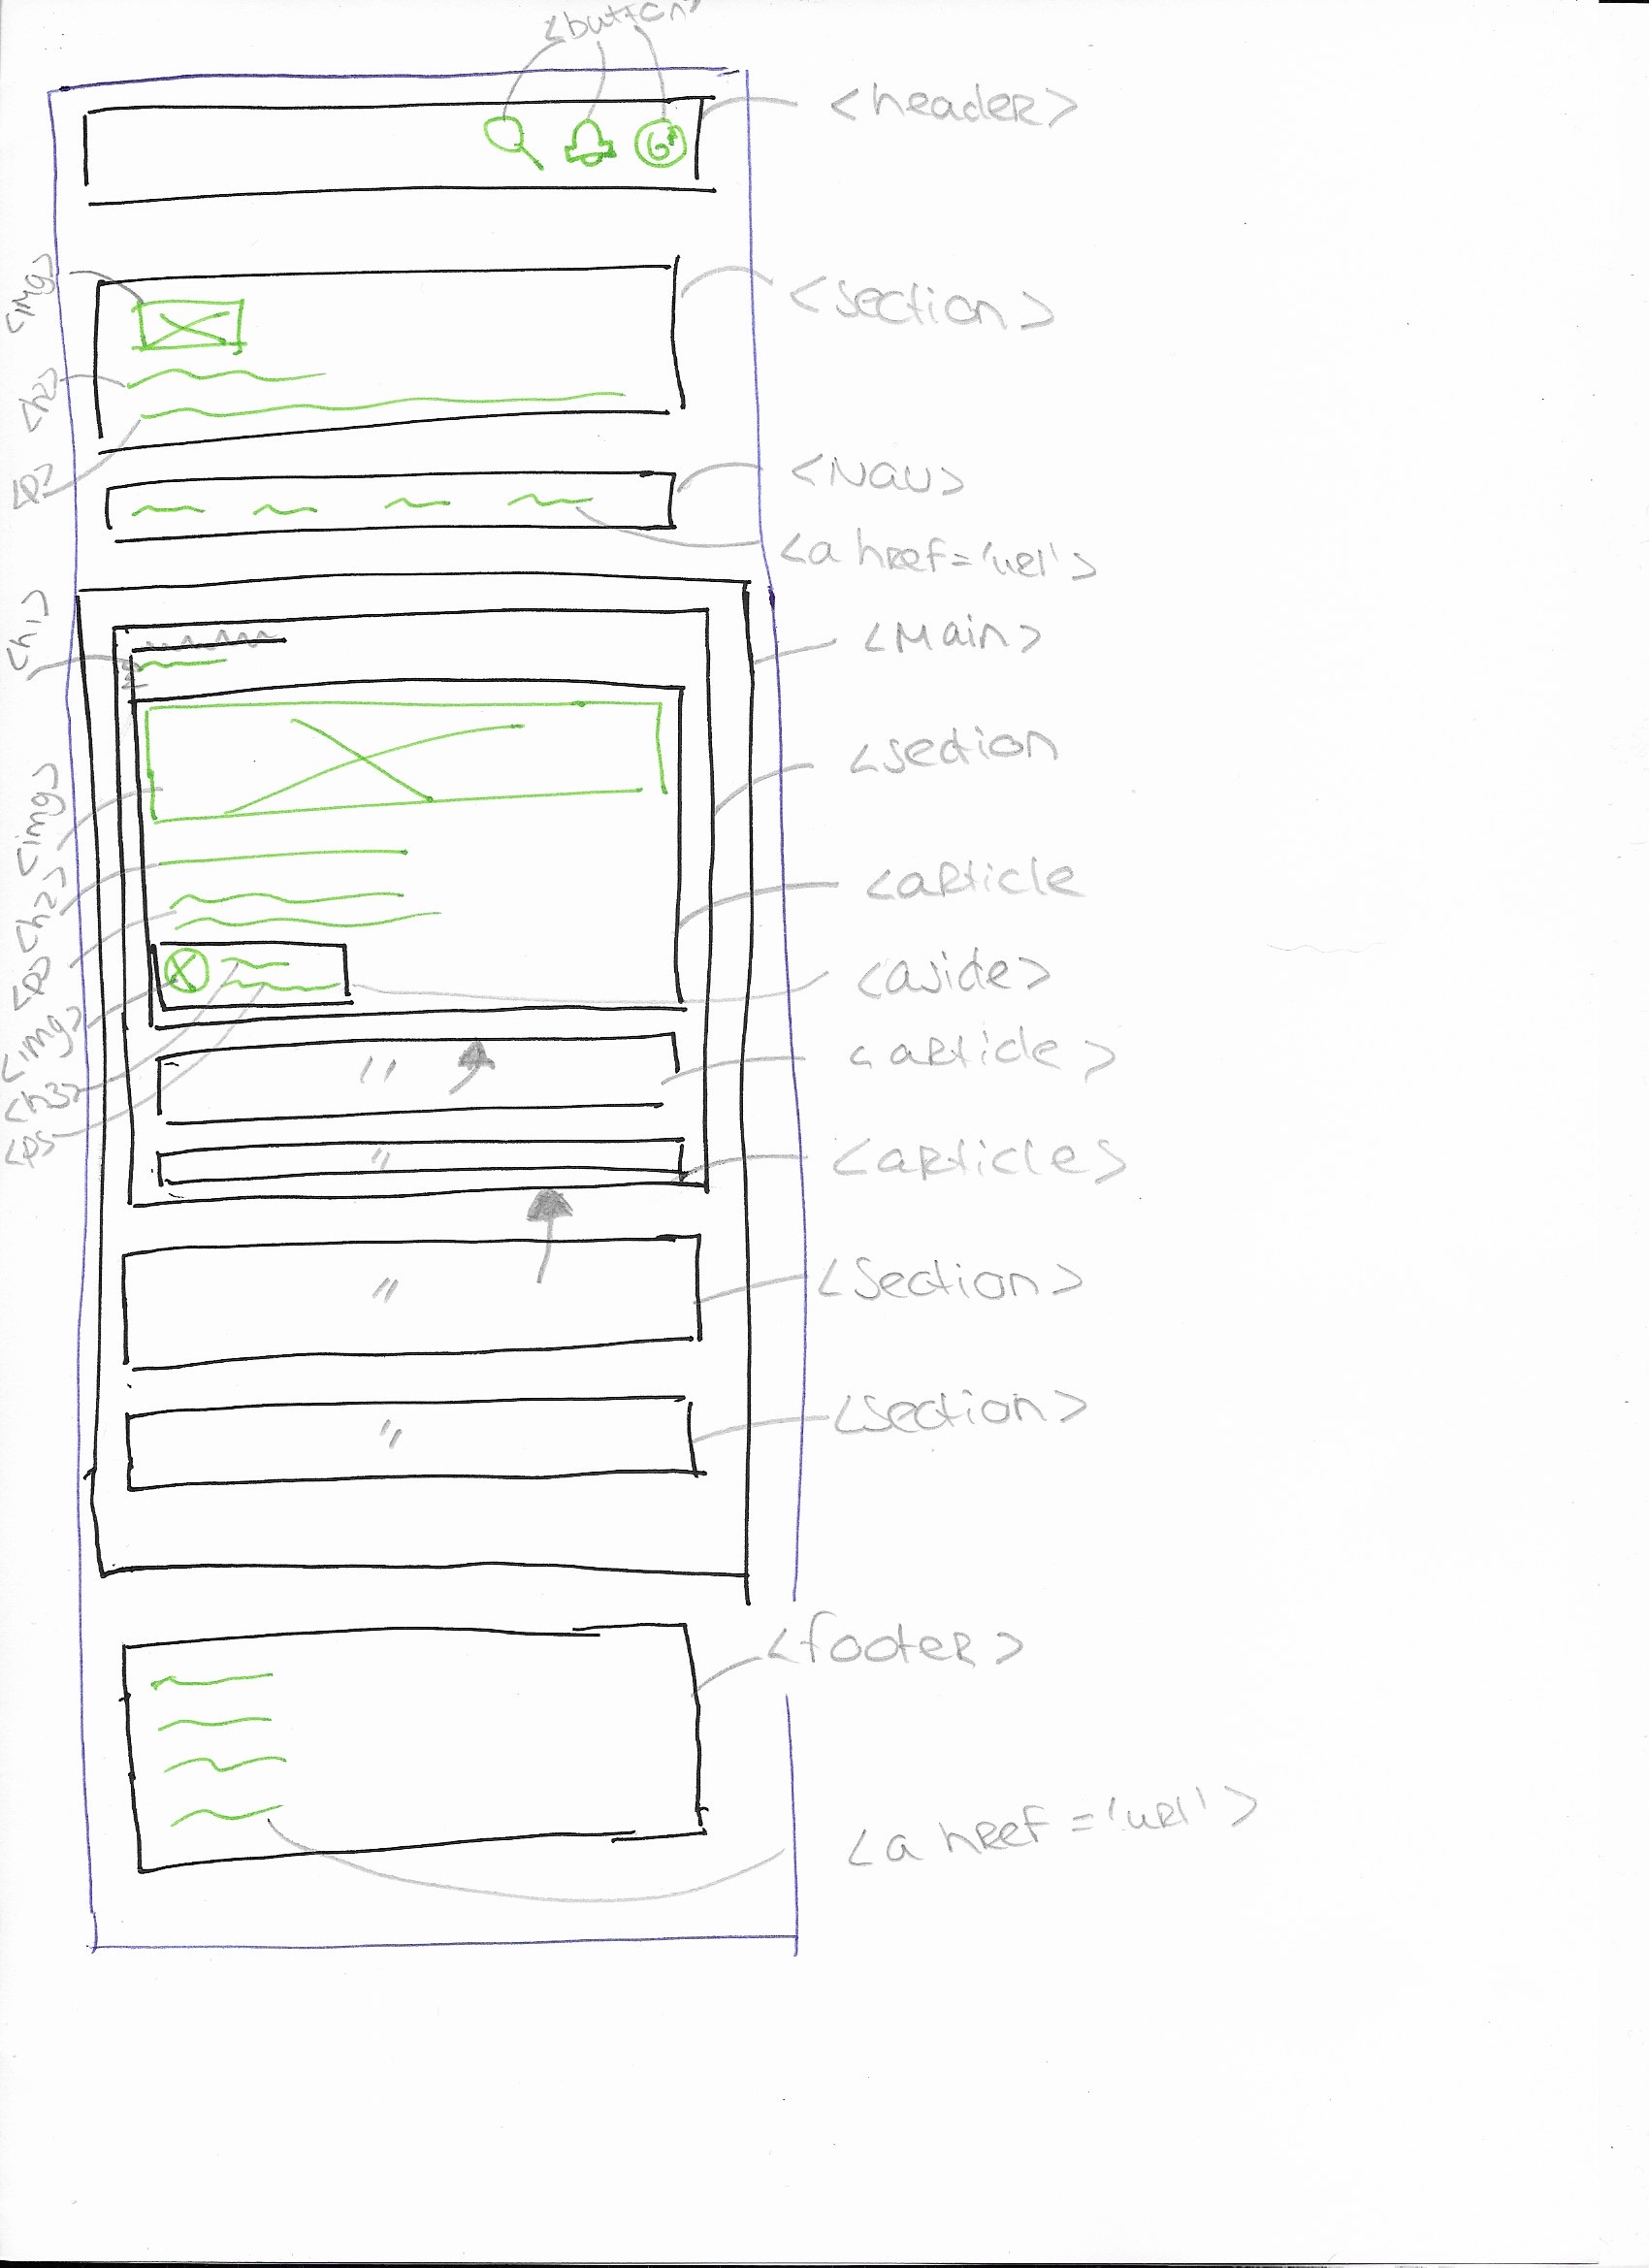 <button>
<header>
<img>
<section>
<h2>
<p>
<Nav>
<a href='url'>
<h1>
<Main>
<section
<img>
<article
<h2>
<p>
<aside>
<img>
<article>
<h3>
<p>
<article>
<section>
<section>
<footer>
<a href='url'>